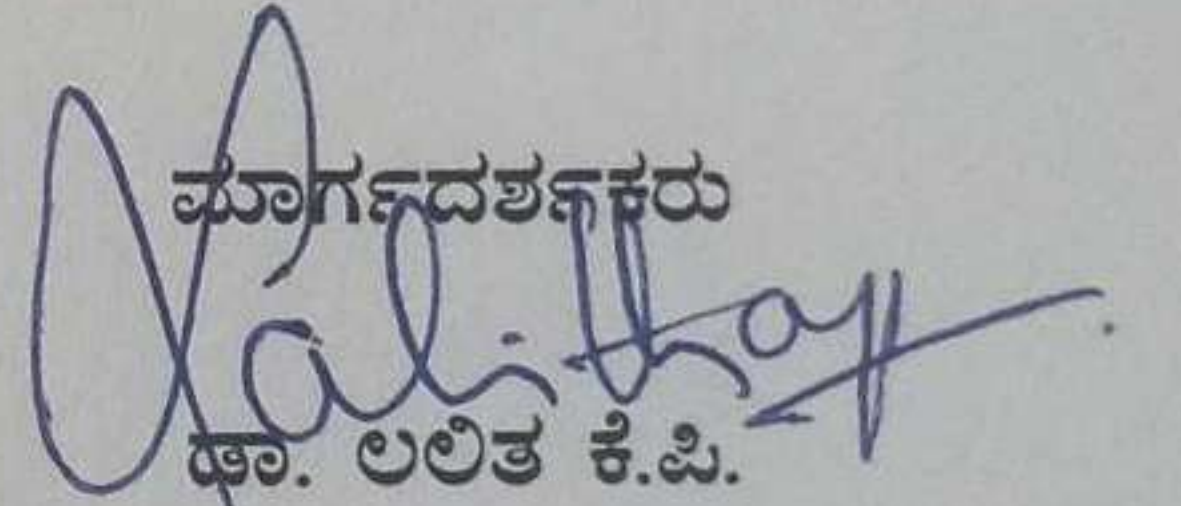 ಮಾರ್ಗದರ್ಶಕರು
Lalitha
ಡಾ. ಲಲಿತ ಕೆ.ಪಿ.